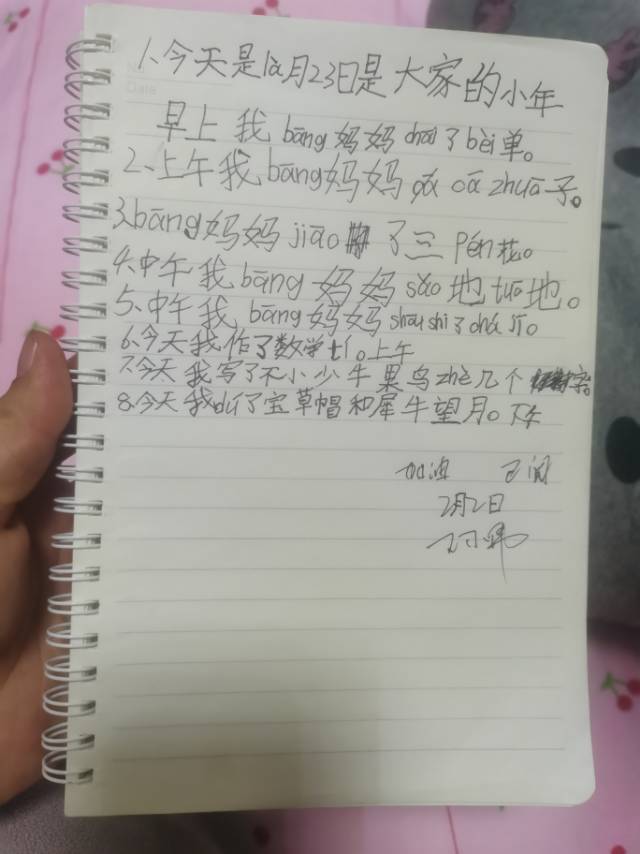 1.今天是là月23日是大家的小年
早上我bāng妈妈chāi了bèi单。
2.上午我bāng妈妈 cā zhuō子。
3.bāng妈妈jiāo了三pén花。
4.中午我bāng妈妈sǎo地tuō地。
5.中午我bāng妈妈shōu shi了chá jī。
6.今天我作了数学tí。上午
7.今天我写了不小少牛果鸟zhè几个字。
8.今天我dú了宝草帽和犀牛望月。下午
加油 已阅
2月2日